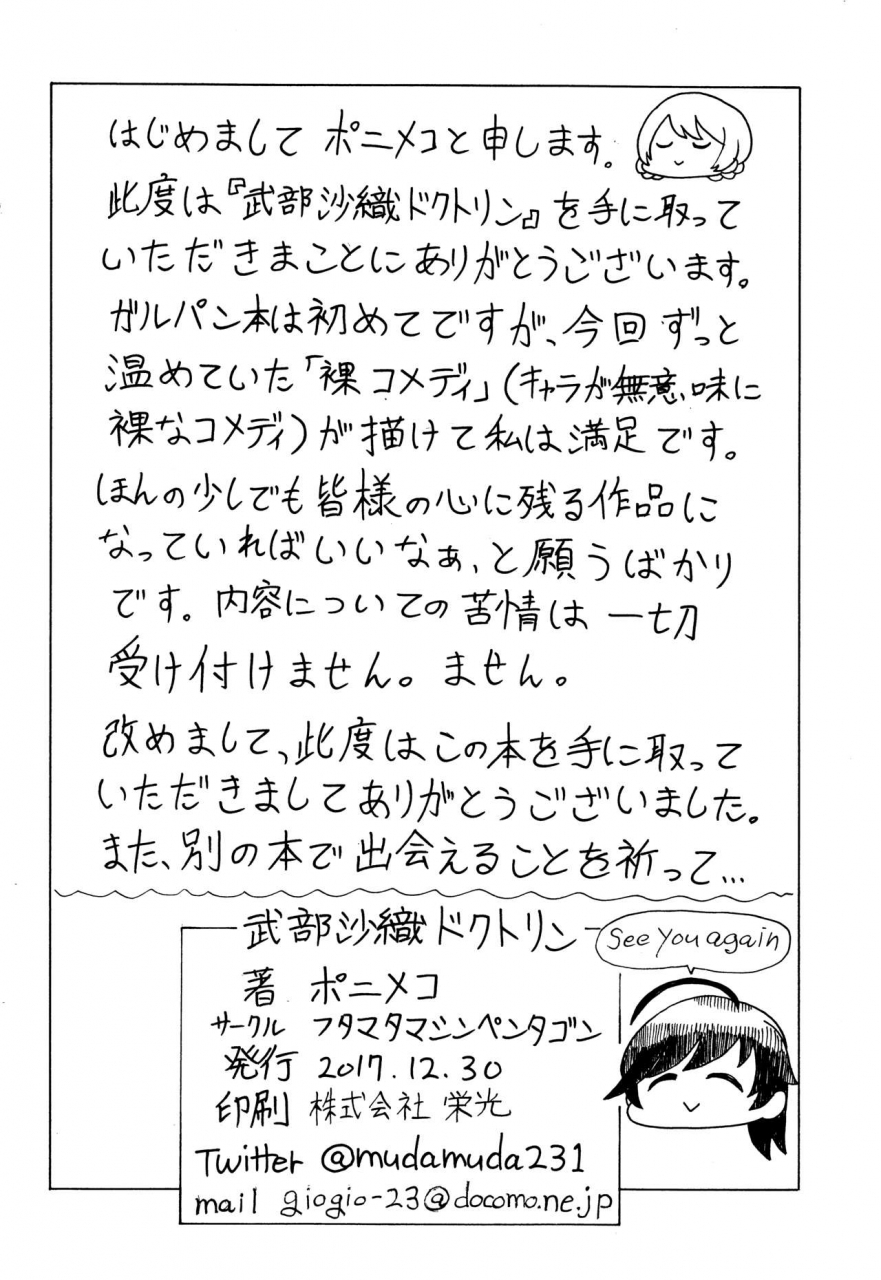 はじめまして ポニメコと申します。
此度は『武部沙織ドクトリン』を手に取って
いただきまことにありがとうございます。
ガルパン本は初めてですが、今回ずっと
温めていた「裸コメディ」(キャラが無意味に
裸なコメディ)が描けて私は満足です。
ほんの少しでも皆様の心に残る作品に
なっていればいいなぁ、と願うばかり
です。内容についての苦情は一切
受け付けません。ません。
改めまして、此度はこの本を手に取って
いただきましてありがとうございました。
また、別の本で出会えることを祈って...
武部沙織ドクトリン
See you again
著 ポニメコ
サークル フタマタマシンペンタゴン
発行 2017.12.30
印刷 株式会社 栄光
Twitter @mudamuda231
mail giogio-23@docomo.ne.jp